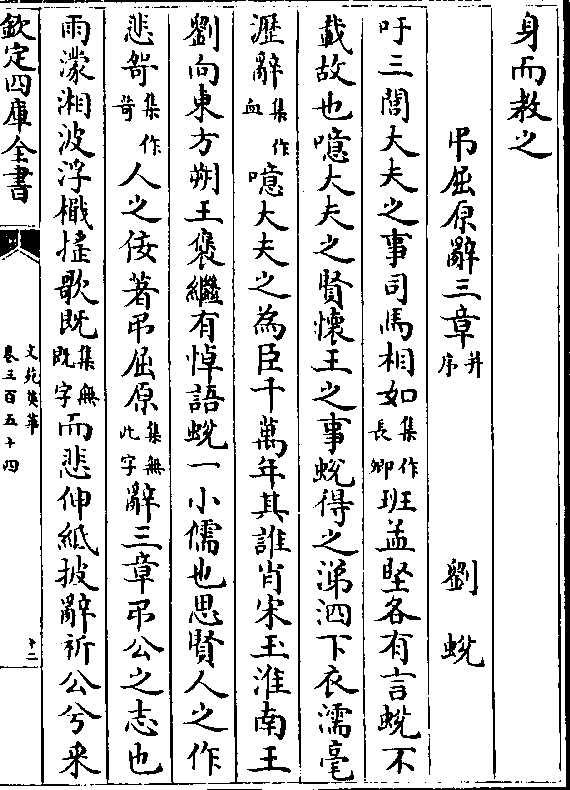 身而教之
弔屈原辭三章并序 劉蛻
吁三閭大夫之事司馬相如集作長卿班孟堅各有言蛻不
載故也噫大夫之賢懷王之事蛻得之涕泗下衣濡毫
瀝辭集作血噫大夫之為臣千萬年其誰肖宋玉淮南王
劉向東方朔王褒繼有悼語蛻一小儒也思賢人之作
悲哿集作奇人之佞著弔屈原集無此字辭三章弔公之志也
雨濛湘波浮檝搖歌既集無既字而悲伸紙披辭祈公兮来
欽定四庫全書
文苑英華
卷三百五十四
十二